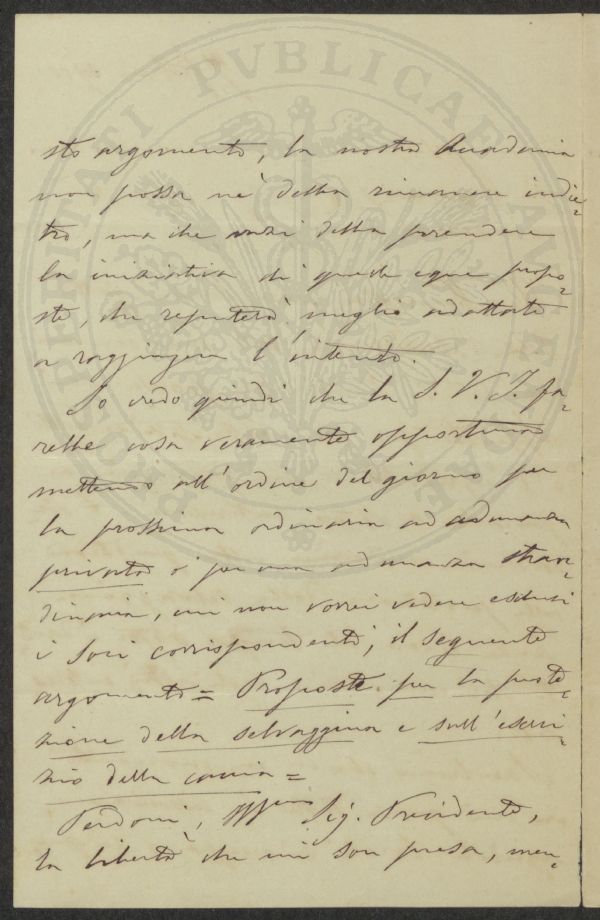 sto argomento, la nostra Accademia
non possa nè debba rimanere indie-
tro, ma che anzi debba prendere
la iniziativa di quelle eque propo-
ste, che reputerà meglio adattate
a raggiungere l'intento.
Io credo quindi che la S. V. I. fa-
rebbe cosa veramente opportuna
mettendo all'ordine del giorno per
la prossima ordinaria adunanza
privata o per una adunanza straor-
dinaria, cui non vorrei vedere esclusi
i Soci corrispondenti, il seguente
argomento = Proposte per la prote-
zione della selvaggina e sull'eserci-
zio della caccia =
Perdoni, Ill.mo Sig. Presidente,
la libertà che mi son presa, men-